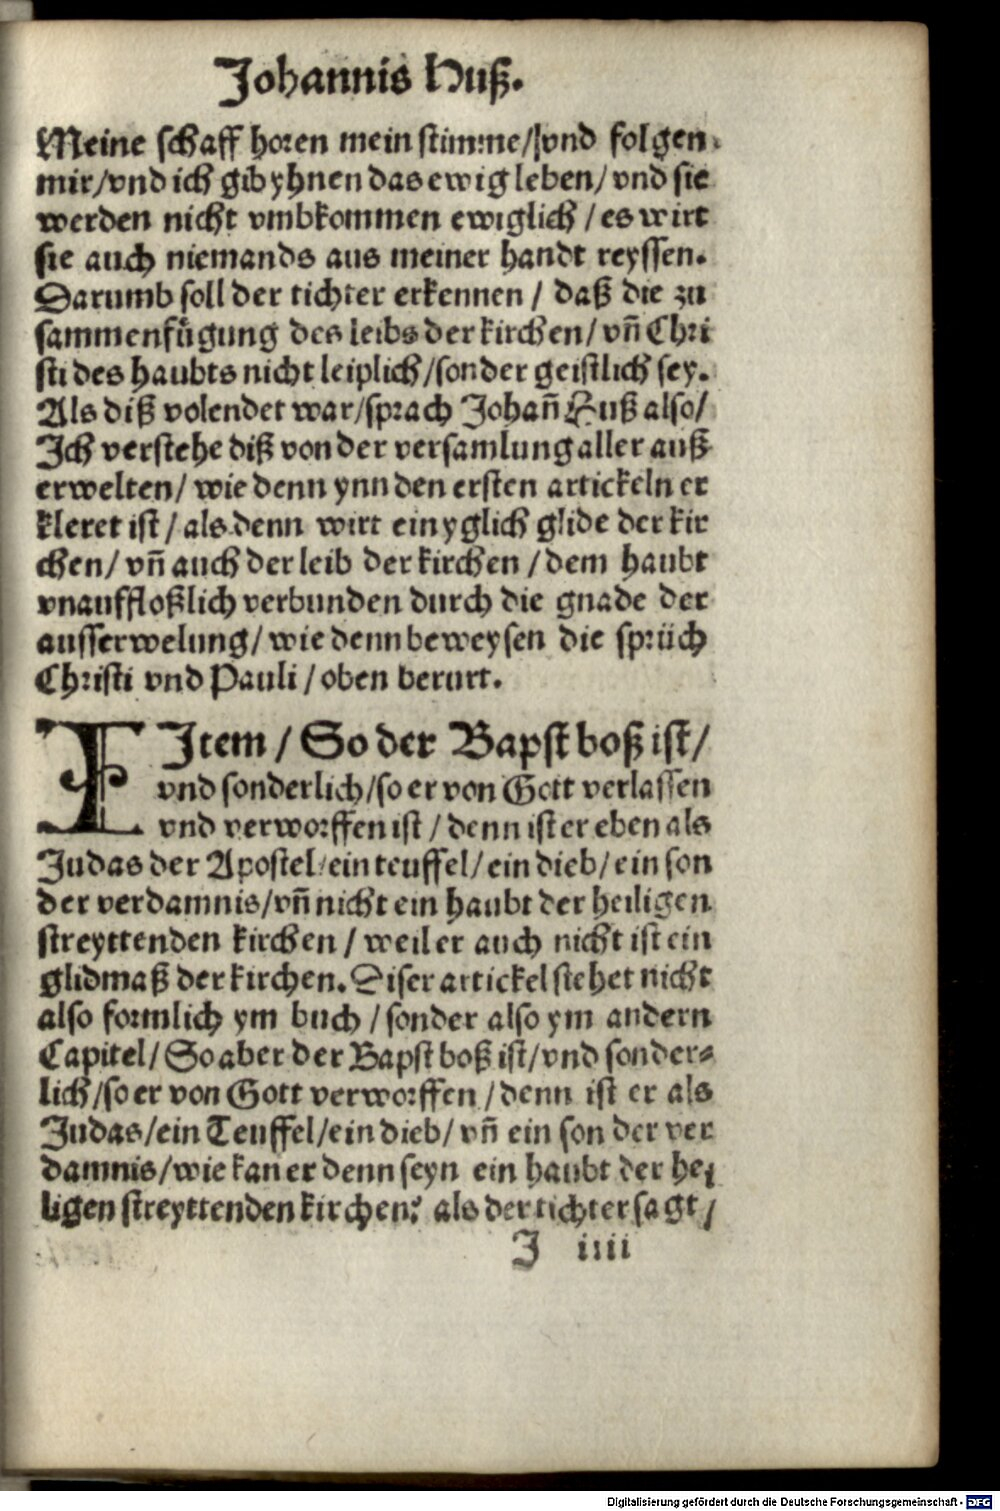 Johannis Huß.
Meine schaff horen mein stimme/vnd folgen
mir/vnd ich gib yhnen das ewig leben/ vnd sie
werden nicht vmbkommen ewiglich / es wirt
sie auch niemands aus meiner handt reyssen.
Darumb soll der tichter erkennen / daß die zu
sammenfügung des leibs der kirchen/ vñ Chri
sti des haubts nicht leiplich/sonder geistlich sey.
Als diß volendet war/sprach Johañ Huß also/
Ich verstehe diß von der versamlung aller auß
erwelten/ wie denn ynn den ersten artickeln er
kleret ist / als denn wirt ein yglich glide der kir
chen/ vñ auch der leib der kirchen / dem haubt
vnauffloßlich verbunden durch die gnade der
ausserwelung/ wie denn beweysen die sprüch
Christi vnd Pauli / oben berurt.
I Item / So der Bapst boß ist/
vnd sonderlich/so er von Gott verlassen
vnd verworffen ist / denn ist er eben als
Judas der Apostel/ein teuffel/ ein dieb/ ein son
der verdamnis/vñ nicht ein haubt der heiligen
streyttenden kirchen / weil er auch nicht ist ein
glidmaß der kirchen. Diser artickel stehet nicht
also formlich ym buch / sonder also ym andern
Capitel/ So aber der Bapst boß ist/vnd sonder-
lich/so er von Gott verworffen / denn ist er als
Judas/ein Teuffel/ein dieb/ vñ ein son der ver
damnis/wie kan er denn seyn ein haubt der hei
ligen streyttenden kirchen? als der tichter sagt/
J iiii
Digitalisierung gefördert durch die Deutsche Forschungsgemeinschaft - DFG